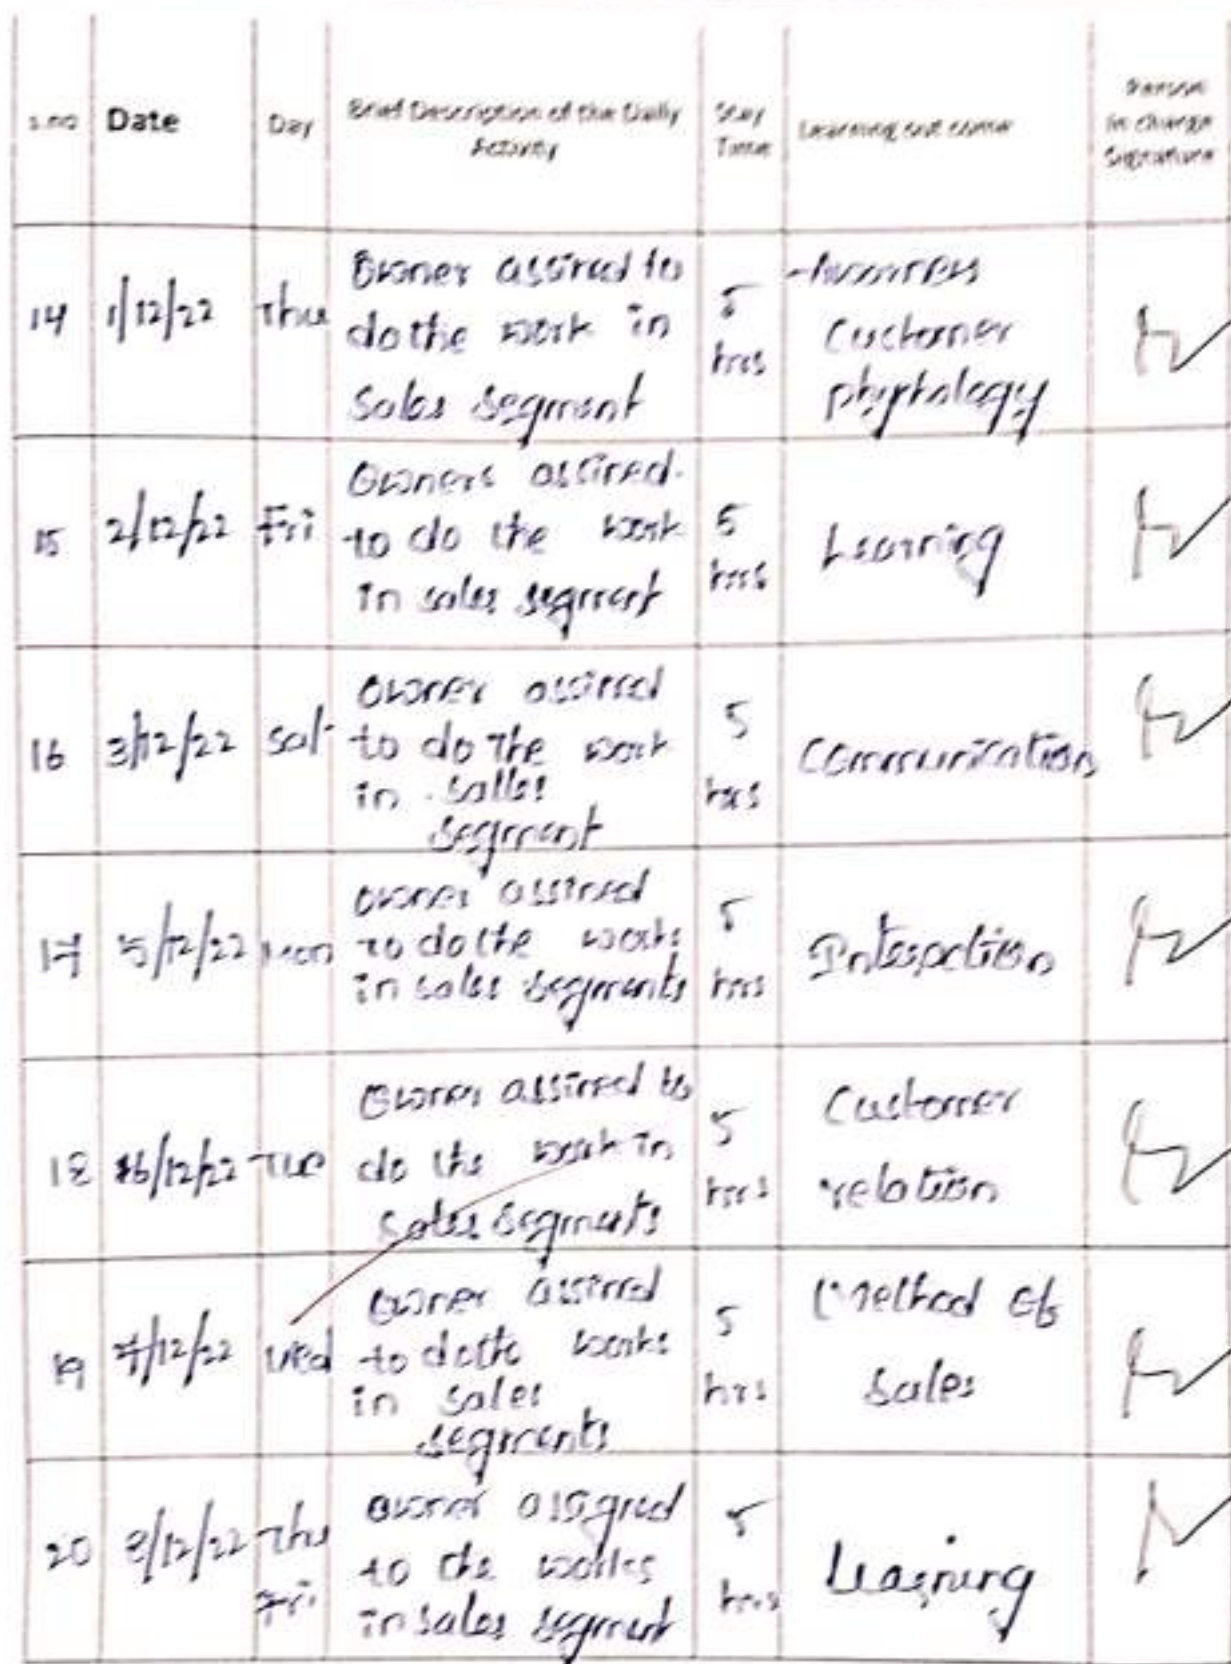 s.no Date Day Brief Description of the Daily Activity Stay Time Learning out come Person in charge Signature
14 1/12/22 Thu Owner assired to do the work in sales segment 5 hrs Customer
15 2/12/22 Fri Owners assired to do the work in sales segment 5 hrs Learning
16 3/12/22 Sat Owner assired to do the work in salles segment 5 hrs Communication
17 5/12/22 Mon Owner assired to do the works in sales segments 5 hrs
18 6/12/22 Tue Owner assired to do the work in sales segments 5 hrs Customer relation
19 7/12/22 Wed Owner assired to do the works in sales segments 5 hrs Method of sales
20 8/12/22 Thu Fri Owner assigned to the works in sales segment 5 hrs Learning